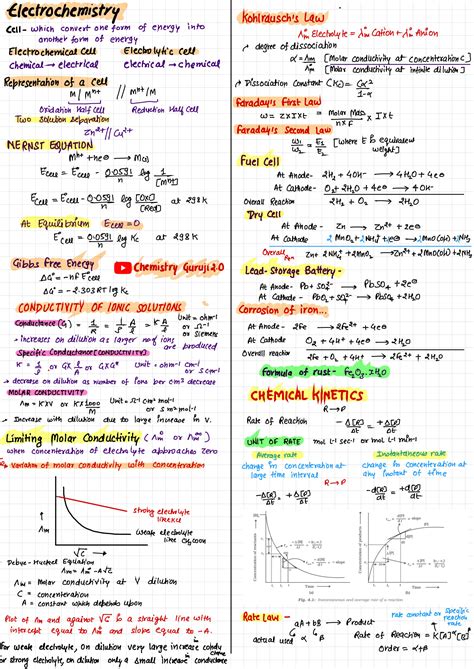 Electrochemistry
Cell - which convert one form of energy into
another form of energy
Electrochemical Cell    Electrolytic cell
Chemical → electrical    electrical → chemical
Representation of a cell
M / Mⁿ⁺ // Mⁿ⁺ / M
Oxidation Half Cell    Reduction Half Cell
Two solution separation
Zn²⁺ || Cu²⁺
NERNST EQUATION
Mⁿ⁺ + ne⊖ → M(s)
Ecell = E°cell - 0.0591/n log 1/[Mⁿ⁺]
Ecell = E°cell - 0.0591/n log [OxD]/[Red] at 298 K
At Equilibrium Ecell = 0
E°cell = 0.0591/n log Kc at 298 K
Gibbs Free Energy
Chemistry Guruji 2.0
ΔG° = -nFE°cell
ΔG° = -2.303RT log Kc
CONDUCTIVITY OF IONIC SOLUTIONS
Conductance (G) = 1/R = 1/ρ A/l = K A/l Unit = ohm⁻¹
or Ω⁻¹
or Siemens
→ increases on dilution as larger no of ions
are produced
Specific Conductance (CONDUCTIVITY)
Unit = ohm⁻¹ cm⁻¹
or S cm⁻¹
→ decrease on dilution as number of ions per cm³ decrease
MOLAR CONDUCTIVITY
Λm = KXV or KX1000/M Unit = Ω⁻¹ cm² mol⁻¹
or S m² mol⁻¹
→ Increase with dilution due to large increase in V.
Limiting Molar Conductivity (Λ°m or Λ∞m)
when concentration of electrolyte approaches zero
Variation of molar conductivity with concentration
strong electrolyte
Λm
weak electrolyte
CH₃COOH
√C →
Debye-Huckel Equation
Λm = Λ°m - A√C
Λm = Molar conductivity at V dilution
C = concentration
A = constant which depends upon
Plot of Λm and against √C is a straight line with
intercept equal to Λ°m and slope equal to -A.
For weak electrolyte, on dilution very large increase
for strong electrolyte, on dilution only a small increase in conductance
Kohlrausch's Law
Λ°m Electrolyte = λ°m Cation + λ°m Anion
degree of dissociation
α = Λm/Λ°m [Molar conductivity at concentration C]
[Molar conductivity at infinite dilution]
Dissociation Constant (Kc) = Cα²/1-α
Faraday's First Law
w = ZXIXt = Molar Mass/n×F X IXt
Faraday's Second Law
w₁/w₂ = E₁/E₂ [where E is equivalent
weight]
Fuel Cell
At Anode - 2H₂ + 4OH⁻ → 4H₂O + 4e⊖
At Cathode - O₂ + 2H₂O + 4e⊖ → 4OH⁻
Overall Reaction 2H₂ + O₂ → 2H₂O
Dry Cell
At Anode - Zn → Zn²⁺ + 2e⊖
At Cathode 2MnO₂ + 2NH₄⁺ + 2e⊖ → 2MnO(OH) + 2NH₃
Overall Rxn Zn + 2NH₄⁺ + 2MnO₂ → Zn²⁺ + 2MnO(OH) + 2NH₃
Lead-Storage Battery -
At Anode - Pb + SO₄²⁻ → PbSO₄ + 2e⊖
At Cathode - PbO₂ + SO₄²⁻ → PbSO₄ + 2H₂O
Corrosion of iron...
At Anode - 2Fe → 2Fe²⁺ + 4e⊖
At Cathode O₂ + 4H⁺ + 4e⊖ → 2H₂O
Overall reaction 2Fe + O₂ + 4H⁺ → 2Fe²⁺ + 2H₂O
Formula of rust - Fe₂O₃.xH₂O
CHEMICAL KINETICS
R → P
Rate of Reaction = -Δ[R]/Δt = +Δ[P]/Δt
UNIT OF RATE = mol L⁻¹ sec⁻¹ or mol L⁻¹ min⁻¹
Average rate    Instantaneous rate
change in concentration at    change in concentration at
large time interval    any instant of time
R → P
-Δ[R]/Δt = +Δ[P]/Δt    -d[R]/dt = +d[P]/dt
Rate Law -
aA + bB → Product
rate constant or specific
reaction
rate
actual used α β
Rate of Reaction = K[A]^α [B]^β
Order = α+β